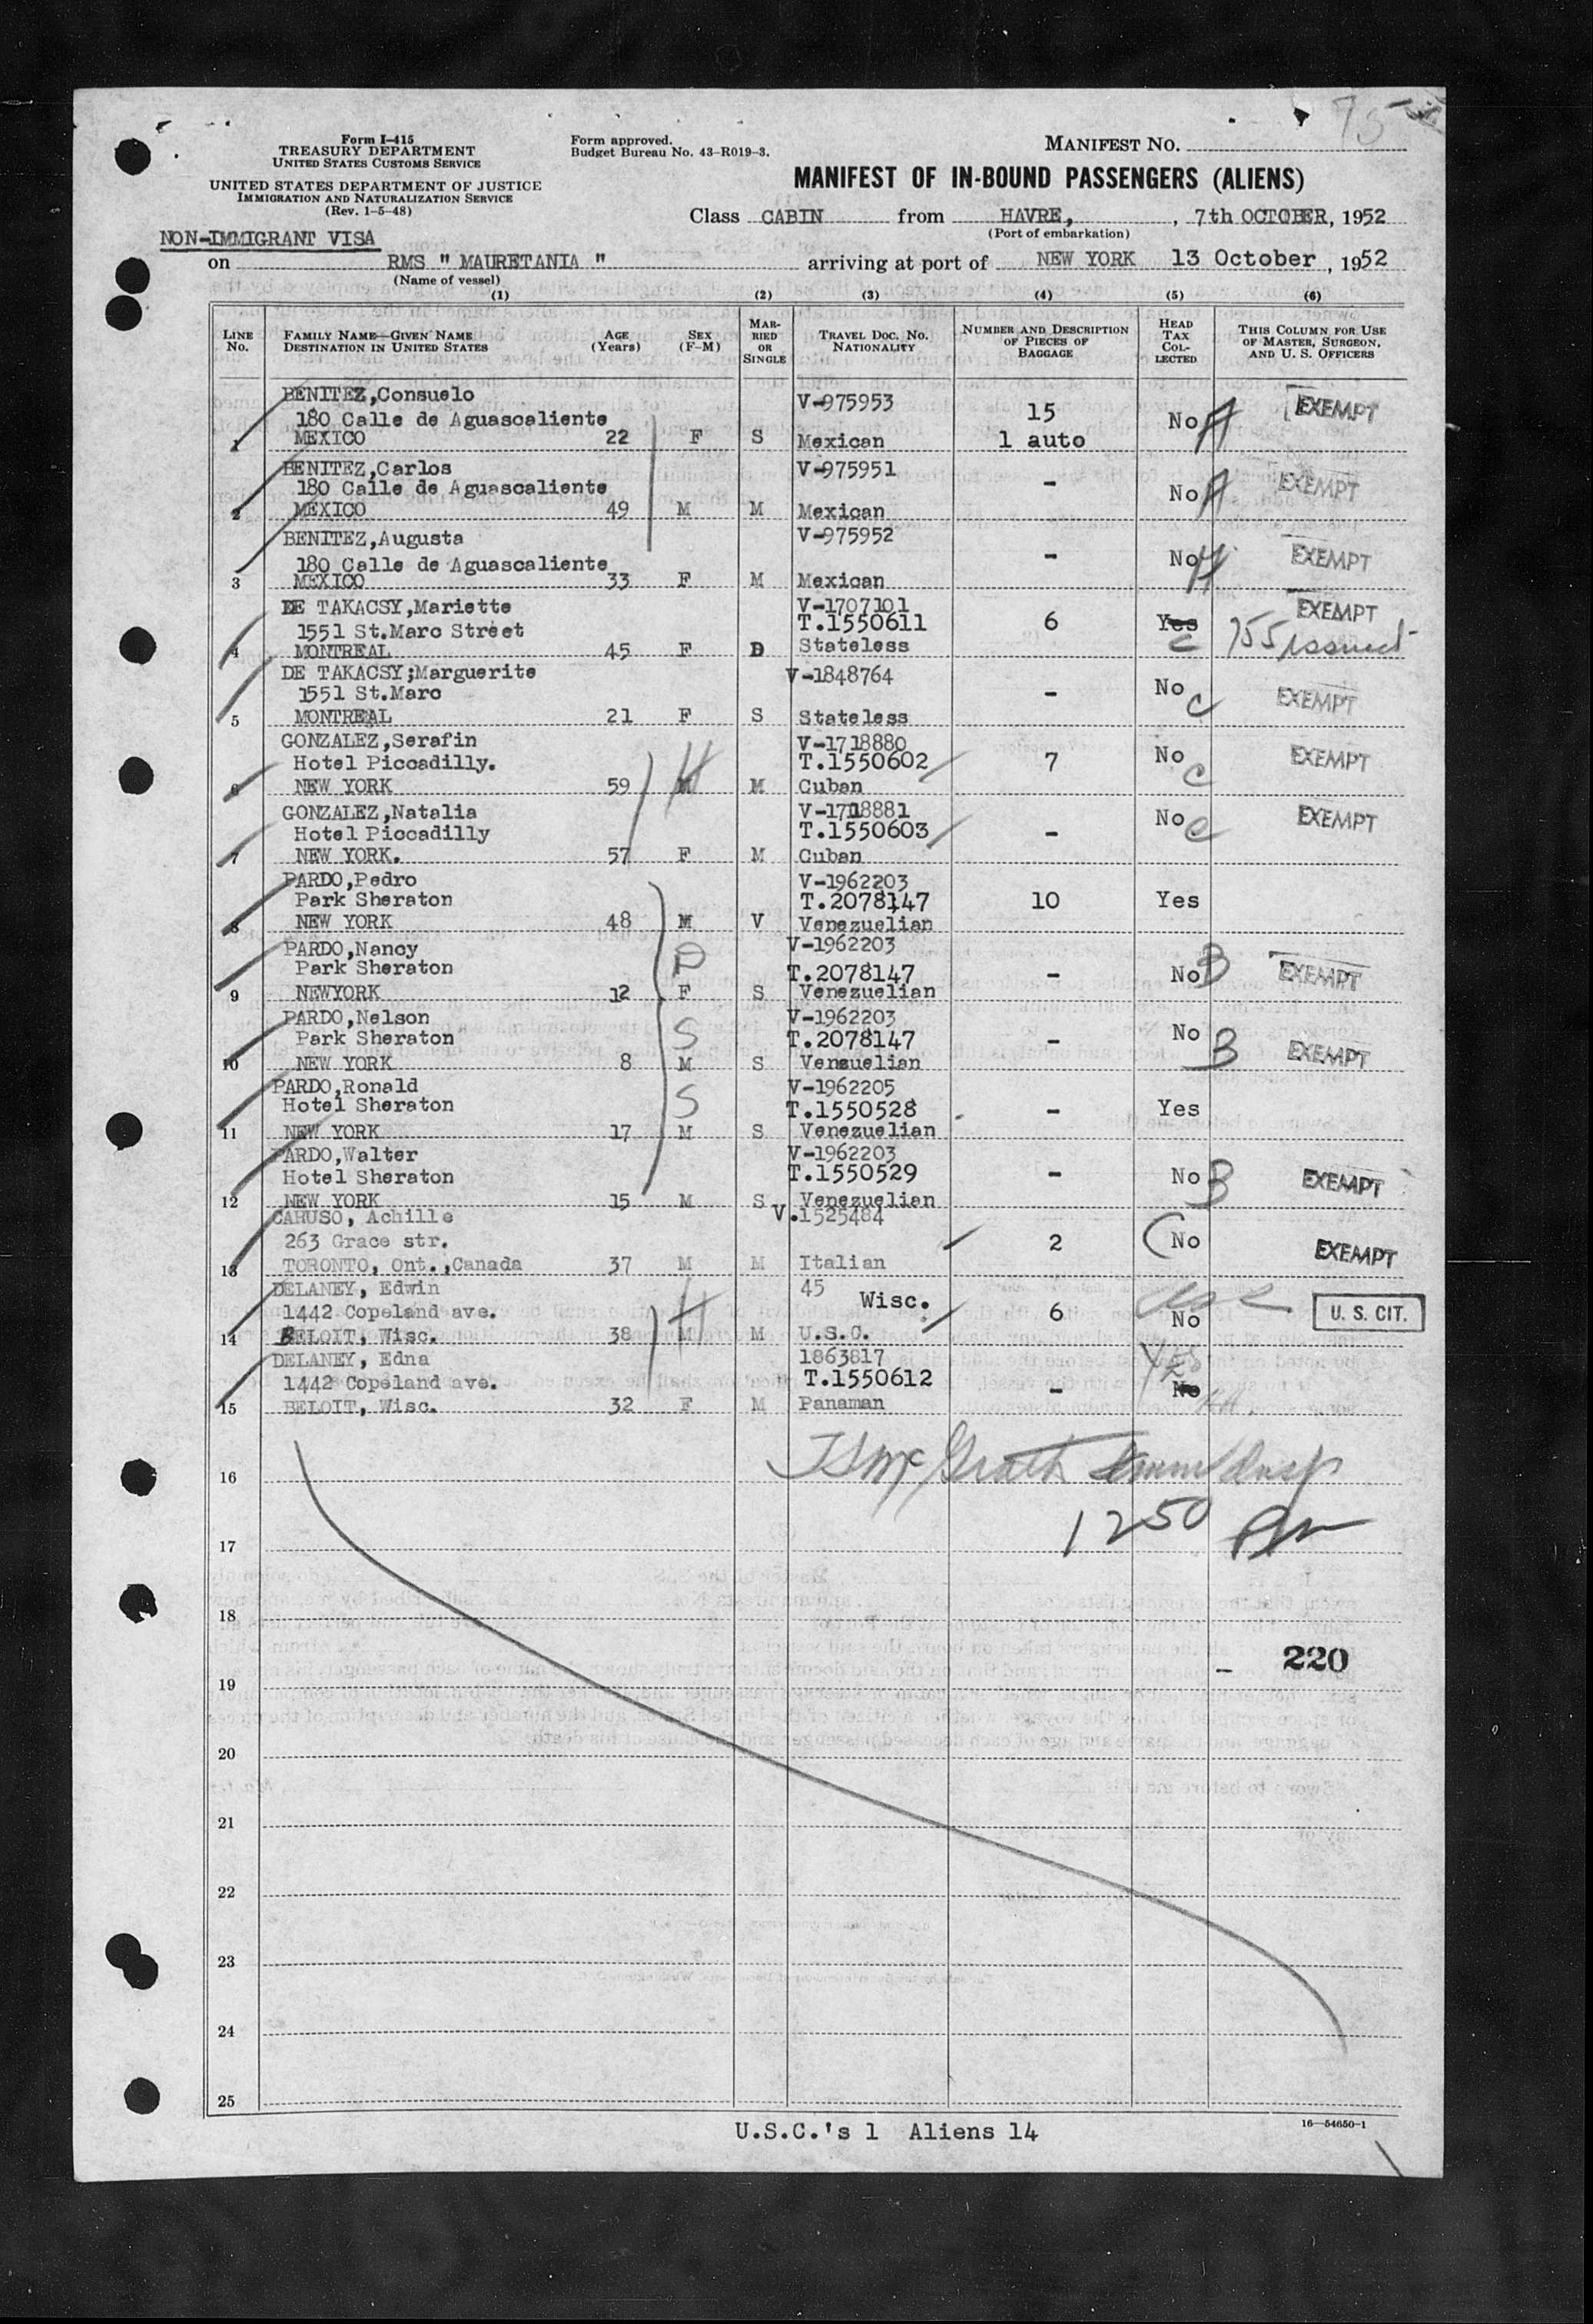 75
Form I-415
TREASURY DEPARTMENT
UNITED STATES CUSTOMS SERVICE
Form approved.
Budget Bureau No. 43-R019-3.
MANIFEST NO.
UNITED STATES DEPARTMENT OF JUSTICE
IMMIGRATION AND NATURALIZATION SERVICE
(Rev. 1-5-48)
MANIFEST OF IN-BOUND PASSENGERS (ALIENS)
Class CABIN from HAVRE, , 7th OCTOBER, 1952
(Port of embarkation)
NON-IMMIGRANT VISA
on RMS " MAURETANIA " arriving at port of NEW YORK 13 October , 1952
(Name of vessel)
(1) (2) (3) (4) (5) (6)
LINE No. FAMILY NAME—GIVEN NAME DESTINATION IN UNITED STATES AGE (Years) SEX (F-M) MARRIED OR SINGLE TRAVEL DOC. NO. NATIONALITY NUMBER AND DESCRIPTION OF PIECES OF BAGGAGE HEAD TAX COLLECTED THIS COLUMN FOR USE OF MASTER, SURGEON, AND U. S. OFFICERS
BENITEZ,Consuelo V-975953 EXEMPT
180 Calle de Aguascaliente 15 No A
1 MEXICO 22 F S Mexican 1 auto
BENITEZ,Carlos V-975951
180 Calle de Aguascaliente - No A EXEMPT
2 MEXICO 49 M M Mexican
BENITEZ,Augusta V-975952
180 Calle de Aguascaliente - No EXEMPT
3 MEXICO 33 F M Mexican
DE TAKACSY,Mariette V-1707101 EXEMPT
1551 St.Marc Street T.1550611 6 Yes
4 MONTREAL 45 F D Stateless C 155 issued
DE TAKACSY;Marguerite V-1848764
1551 St.Marc - No C EXEMPT
5 MONTREAL 21 F S Stateless
GONZALEZ,Serafin V-1718880
Hotel Piccadilly. T.1550602 7 No C EXEMPT
6 NEW YORK 59 M M Cuban
GONZALEZ,Natalia V-1718881
Hotel Piccadilly T.1550603 - No C EXEMPT
7 NEW YORK. 57 F M Cuban
PARDO,Pedro V-1962203
Park Sheraton T.2078147 10 Yes
8 NEW YORK 48 M V Venezuelian
PARDO,Nancy V-1962203
Park Sheraton T.2078147 - No B EXEMPT
9 NEWYORK 12 F S Venezuelian
PARDO,Nelson V-1962203
Park Sheraton T.2078147 - No B EXEMPT
10 NEW YORK 8 M S Venzuelian
PARDO,Ronald V-1962205
Hotel Sheraton T.1550528 - Yes
11 NEW YORK 17 M S Venezuelian
PARDO,Walter V-1962203
Hotel Sheraton T.1550529 - No B EXEMPT
12 NEW YORK 15 M S Venezuelian
CARUSO, Achille V.1525484
263 Grace str. 2 No EXEMPT
13 TORONTO, Ont.,Canada 37 M M Italian
DELANEY, Edwin 45
1442 Copeland ave. Wisc. 6 No U. S. CIT.
14 BELOIT, Wisc. 38 M M U.S.C.
DELANEY, Edna 1863817 Yes
1442 Copeland ave. T.1550612 - No
15 BELOIT, Wisc. 32 F M Panaman
16
1250 Pm
17
18
220
19
20
21
22
23
24
25
16—54650-1
U.S.C.'s 1 Aliens 14